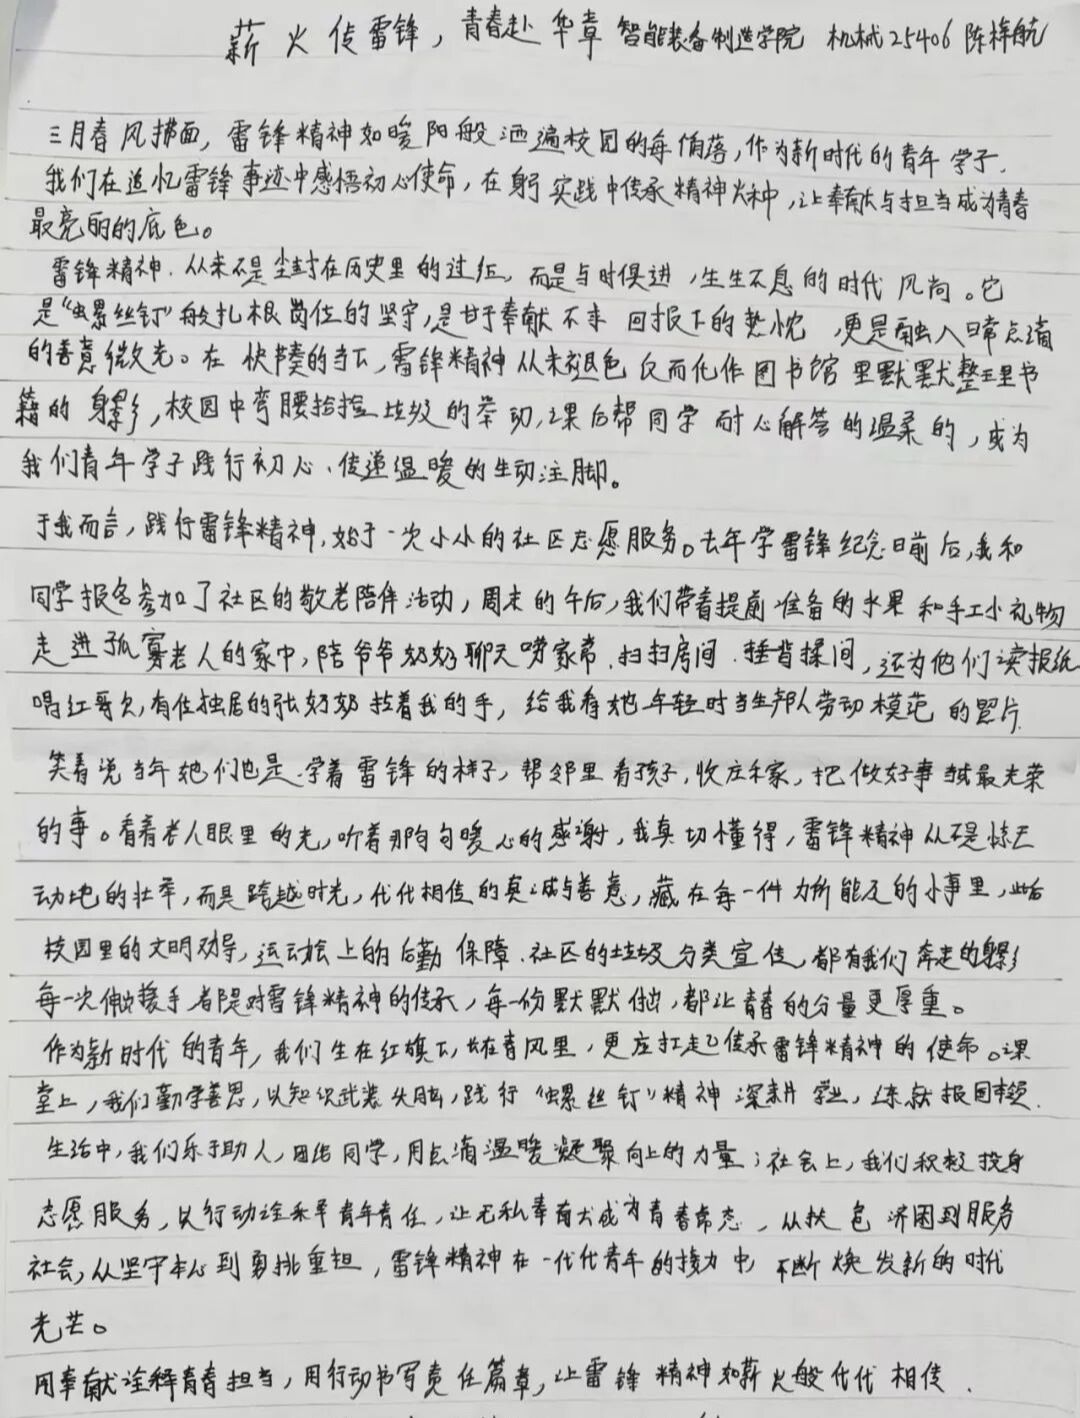 薪火传雷锋，青春赴华章 智能装备制造学院 机械25406 陈梓航
三月春风拂面，雷锋精神如暖阳般洒遍校园的每角落，作为新时代的青年学子.
我们在追忆雷锋事迹中感悟初心使命，在躬实践中传承精神火种，让奉献与担当成为青春
最亮丽的底色。
雷锋精神.从来不是尘封在历史里的过往，而是与时俱进，生生不息的时代风尚。它
是“螺丝钉”般扎根岗位的坚守，是甘于奉献不求回报下的热忱，更是融入日常点滴
的善意微光。在快节奏的当下，雷锋精神从未褪色反而化作图书馆里默默整理书
籍的身影，校园中弯腰拾捡垃圾的举动，课后帮同学耐心解答的温柔的，成为
我们青年学子践行初心、传递温暖的生动注脚。
于我而言，践行雷锋精神，始于一次小小的社区志愿服务。去年学雷锋纪念日前后，我和
同学报名参加了社区的敬老陪伴活动，周末的午后，我们带着提前准备的水果和手工小礼物
走进孤寡老人的家中，陪爷爷奶奶聊天唠家常.扫扫房间.捶背揉间，还为他们读报纸
唱红歌，有位独居的张奶奶拉着我的手，给我看她年轻时当生产队劳动模范的照片.
笑着说当年她们也是学着雷锋的样子，帮邻里看孩子，收庄稼，把做好事当最光荣
的事。看着老人眼里的光，听着那句句暖心的感谢，我真切懂得，雷锋精神从不是惊天
动地的壮举，而是跨越时光，代代相传的真诚与善意，藏在每一件力所能及的小事里，此后
校园里的文明劝导，运动会上的后勤保障、社区的垃圾分类宣传，都有我们奔走的身影
每一次伸出援手都是对雷锋精神的传承，每一份默默付出，都让青春的分量更厚重。
作为新时代的青年，我们生在红旗下，长在春风里，更应扛起传承雷锋精神的使命。课
堂上，我们勤学善思，以知识武装头脑，践行“螺丝钉”精神深耕学业，练就报国本领.
生活中，我们乐于助人，团结同学，用点滴温暖凝聚向上的力量；社会上，我们积极投身
志愿服务，以行动诠释青年责任，让无私奉献成为青春常态，从扶危济困到服务
社会，从坚守本心到勇挑重担，雷锋精神在一代代青年的接力中，不断焕发新的时代
光芒。
用奉献诠释青春担当，用行动书写责任篇章，让雷锋精神如薪火般代代相传.